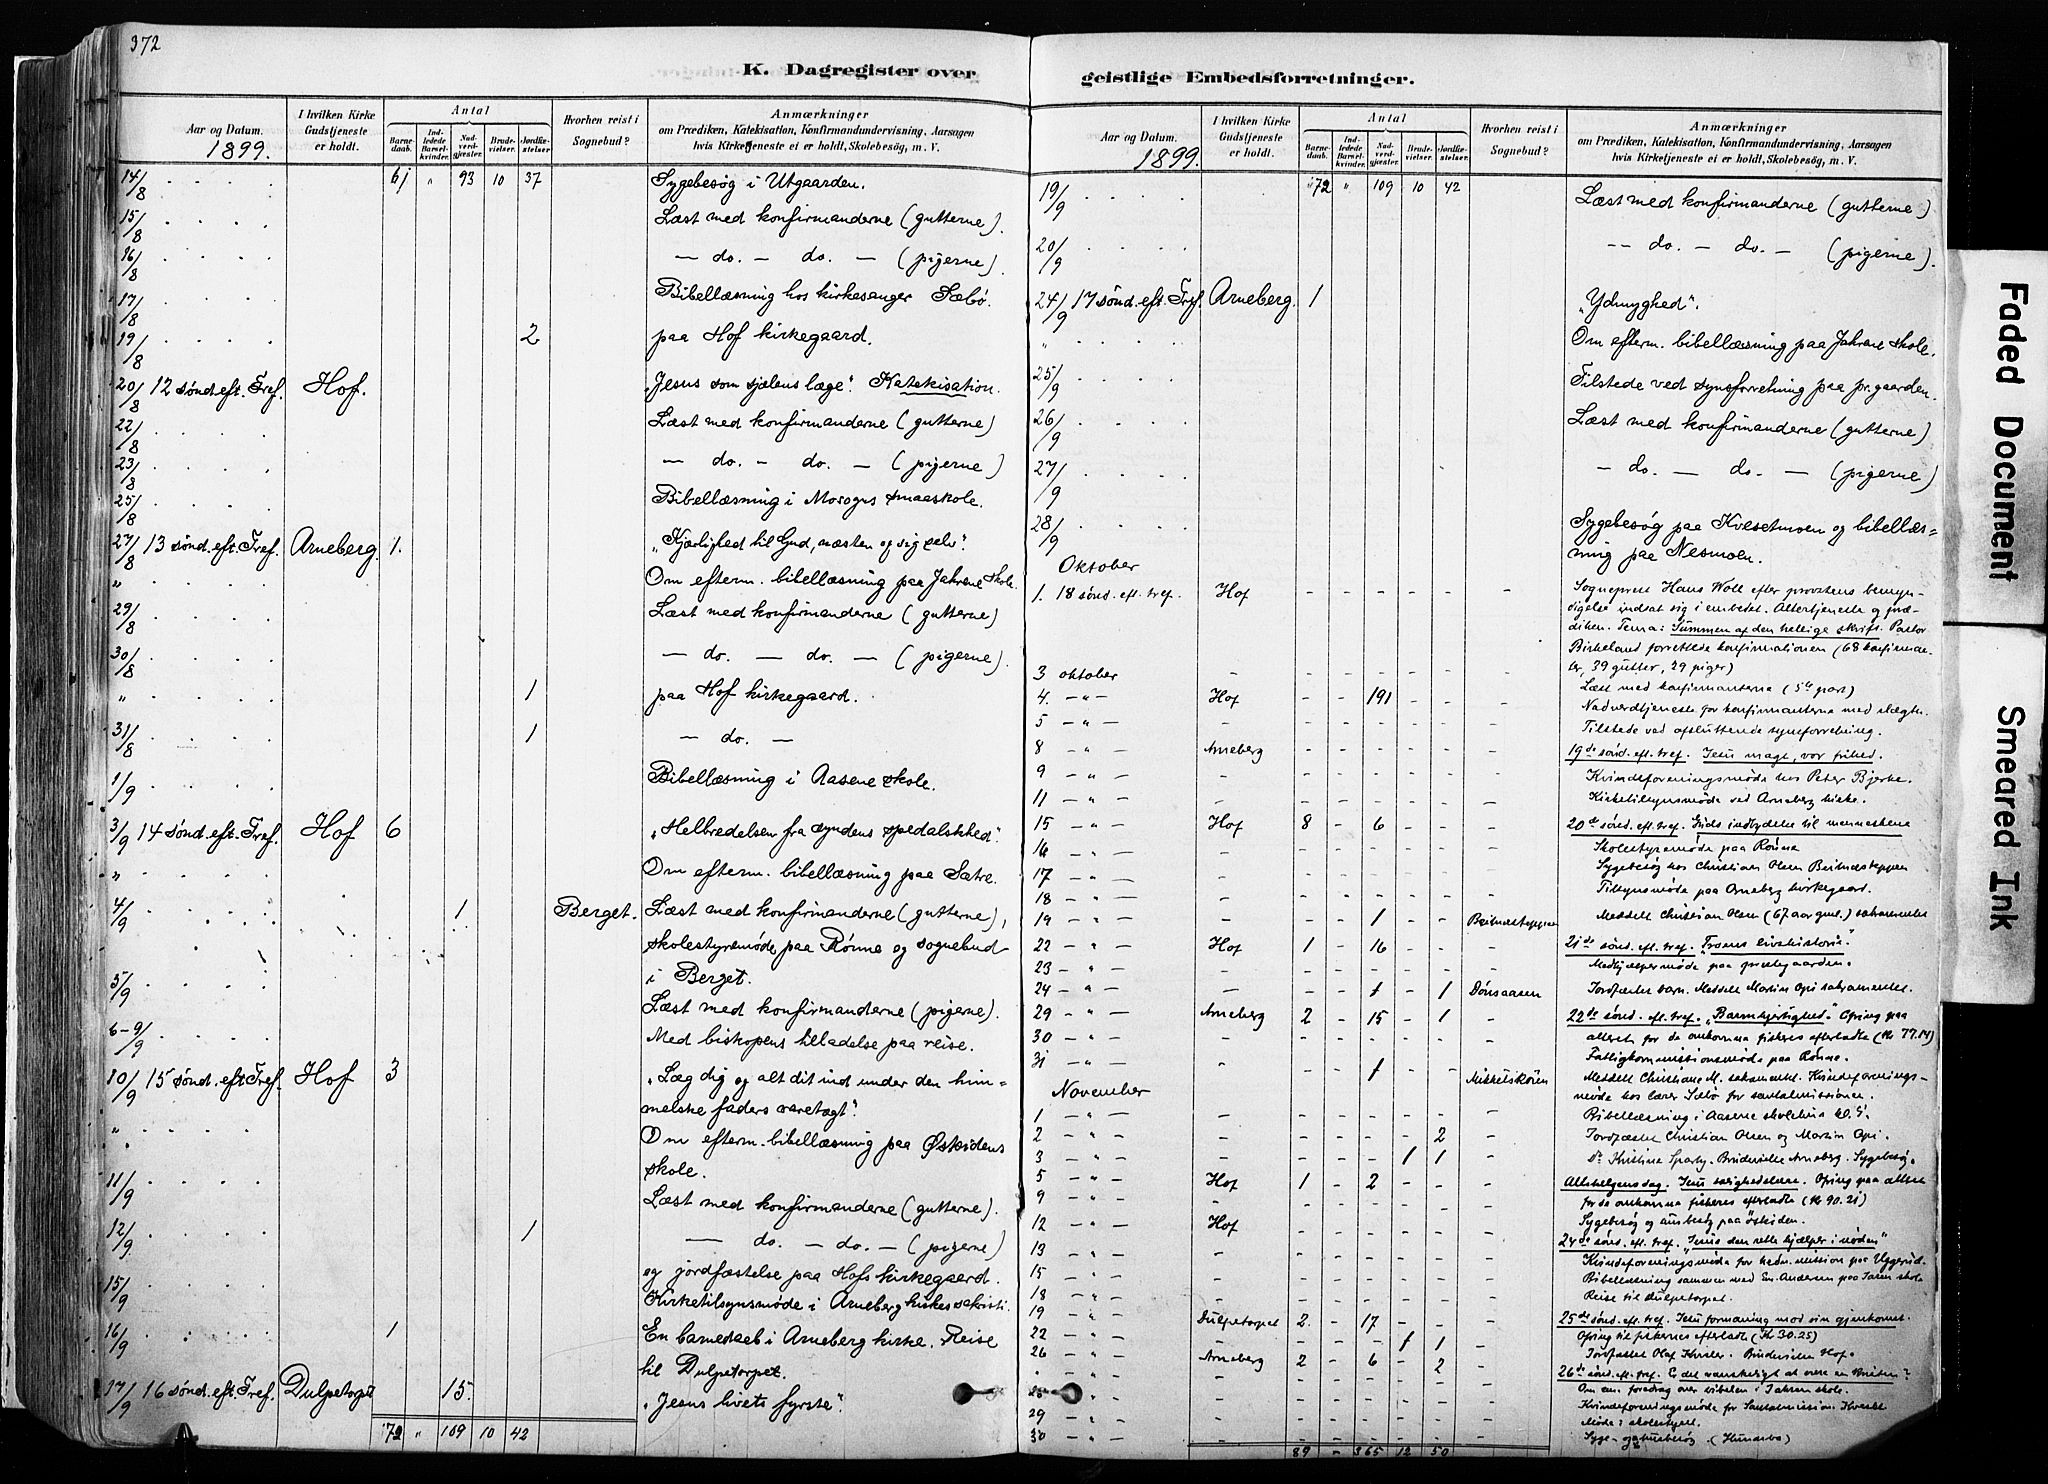 372
K. Dagregister over
Aar og Datum.
1899.
I hvilken Kirke
Gudstjeneste
er holdt.
Antal
Barne-
daab.
Ind-
ledede
Barsel-
kvinder.
Nad-
verd-
gjester.
Brude-
vielser.
Jordfæ-
stelser
Hvorhen reist i
Sognebud?
Anmærkninger
om Prædiken, Katekisation, Konfirmandundervisning, Aarsagen
hvis Kirketjeneste ei er holdt, Skolebesøg, m. V.
14/8 61 " 93 10 37 Sygebesøg i Utgaarden.
15/8 Læst med konfirmanderne (gutterne).
16/8 — do. — do. — (pigerne).
17/8 Bibellæsning hos kirkesanger Sæbö.
19/8 2 paa Hof kirkegaard.
20/8 12 sönd. eft. Tref. Hof. „Jesus som sjælens læge". Katekisation.
22/8 Læst med konfirmanderne (gutterne)
23/8 — do. — do. — (pigerne)
25/8 Bibellæsning i Morogns smaaskole.
27/8 13 sönd. eft. Tref. Arneberg. 1. „Kjærlighed til Gud, næsten og sig selv".
" Om efterm. bibellæsning paa Jahrene Skole.
29/8 Læst med konfirmanderne (gutterne)
30/8 — do. — do. — (pigerne).
" 1 paa Hof kirkegaard.
31/8 1 — do. —
1/9 Bibellæsning i Aasene skole.
3/9 14 sönd. eft. Tref. Hof 6 „Helbredelsen fra syndens spedalskhed".
" Om efterm. bibellæsning paa Sætre.
4/9 1 Berget. Læst med konfirmanderne (gutterne),
skolestyremöde paa Rönne og sognebud
i Berget.
5/9 Læst med konfirmanderne (pigerne).
6-9/9 Med biskopens tilladelse paa reise.
10/9 15 sönd. eft. Tref. Hof 3 „Læg dig og alt dit ind under den him-
melske faders varetægt".
" Om efterm. bibellæsning paa Østsidens
skole.
11/9 Læst med konfirmanderne (gutterne).
12/9 1 — do. — do. — (pigerne)
og jordfæstelse paa Hofs kirkegaard.
15/9 Kirketilsynsmöde i Arneberg kirkes sakristi.
16/9 1 En barnedaab i Arneberg kirke. Reise
til Dulpetorpet.
17/9 16 sönd. eft. Tref. Dulpetorpet 15. „Jesus livets fyrste".
72 " 109 10 42
geistlige Embedsforretninger.
Aar og Datum.
1899.
I hvilken Kirke
Gudstjeneste
er holdt.
Antal
Barne-
daab.
Ind-
ledede
Barsel-
kvinder.
Nad-
verd-
gjester.
Brude-
vielser.
Jordfæ-
stelser.
Hvorhen reist i
Sognebud?
Anmærkninger
om Prædiken, Katekisation, Konfirmandundervisning, Aarsagen
hvis Kirketjeneste ei er holdt, Skolebesøg, m. V.
19/9 72 " 109 10 42 Læst med konfirmanderne (gutterne)
20/9 — do. — do. — (pigerne).
24/9 17 sönd. eft. Tref. Arneberg. 1 „Ydmyghed".
" Om efterm. bibellæsning paa Jahrene Skole.
25/9 Tilstede ved synsforretning paa pr.gaarden.
26/9 Læst med konfirmanderne (gutterne)
27/9 — do. — do. — (pigerne)
28/9 Sygebesøg paa Kvesetmoen og bibellæs-
ning paa Nesmoen.
Oktober
1. 18 sönd. eft. tref. Hof Sogneprest Hans Woll efter provstens bemyn-
digelse indsat sig i embedet. Altertjeneste og præ-
diken. Tema: Summen af den hellige skrift. Pastor
Birkeland forrettede konfirmationen (68 konfirman-
der, 39 gutter, 29 piger)
3 oktober Læst med konfirmanterne
4. —"— Hof 191 Nadverdtjeneste for konfirmanterne med slægtn.
5 —"— Tilstede ved afsluttende synsforretning.
8 —"— Arneberg 19de sönd. eft. tref. Jesu magt, vor frihed.
9 —"— Kvindeforeningsmöde hos Peter Bjerke.
11 —"— Kirketilsynsmöde ved Arneberg kirke.
15 —"— Hof 8 - 6 20de sönd. eft. tref. Guds indbydelse til menneskene
16 —"— Skolestyremöde paa Rönne
17 —"— Sygebesøg hos Christian Olsen
18 —"— Tilsynsmöde paa Arneberg kirkegaard.
19 —"— 1 Meddelt Christian Olsen (67 aar gml.) sakramentet
22 —"— Hof 1 - 16 21de sönd. eft. tref. Troens livshistorie."
23 — Medhjælpermöde paa prestegaarden.
24 —"— 1 - 1 Dönsaasen Jordfæstet barn. Meddelt Martin Opi sakramentet.
29 —"— Arneberg 2 - 15 - 1 22de sönd. eft. tref. „Barmhjertighed". Ofring paa
30 —"— alteret for de omkomne fiskeres efterladte (Kr 77.14)
Fattigkommissionsmöde paa Rönne.
31 —"— 1 Mikkelskören Meddelt Christiane M. sakramentet. Kvindeforenings-
November möde hos lærer Sæbö for santalmissionen.
1 —"— Bibellæsning i Aasene skolehus kl. 5.
2 —"— 2 Jordfæstet Christian Olsen og Martin Opi.
3 —"— 1 1 Do Kristine Sparby. Brudevielse Arneberg. Sygebesøg.
5 —"— Hof 1 - 2 Allehelgensdag. Jesu salighedslære. Ofring paa alteret
for de omkomne fiskeres efterladte (Kr 90.21)
9 —"— Sygebesøg og husbesøg paa Östsiden.
12 —"— Hof 24de sönd. eft. tref. „Jesus den rette hjælper i nöden"
13 —"— Kvindeforeningsmöde for hedn. mission paa Uggerud.
15 —"— Bibellæsning sammen med Em. Andersen paa skole
18 —"— Reise til Dulpetorpet.
19 —"— Dulpetorpet 2 - 17 25de sönd. eft. tref. Jesu formaning mod sin gjenkomst.
Ofring til fiskernes efterladte (Kr 30.25)
22 —"— 1 1 Jordfæstet Olaf . Brudevielse Hof.
26 —"— Arneberg 2 - 6 - 2 26de sönd. eft. tref. Er det vanskeligt at være en kristen?
" Om em. foredrag over bibelen i Jahren skole.
28 —"— Kvindeforeningsmöde for Santalmission.
29 —"— Möde i skolestyret.
30 —"— Syge- og husbesøg.
89 - 365 12 50
Faded Document
Smeared Ink